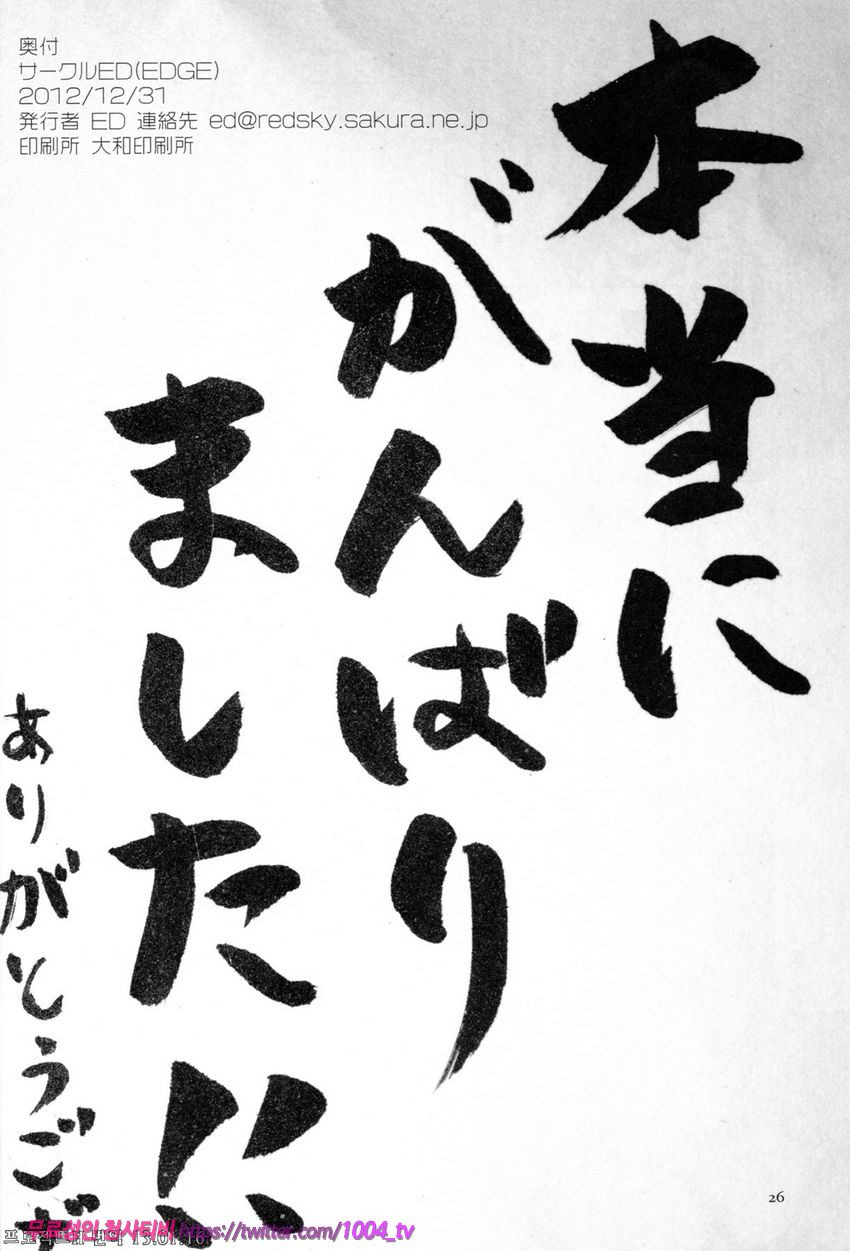 奥付
サークルED(EDGE)
2012/12/31
発行者 ED 連絡先 ed@redsky.sakura.ne.jp
印刷所 大和印刷所
本当に
がんばり
ました!!
ありがとうござ
26
무료성인 천사티비 https://twitter.com/1004_tv